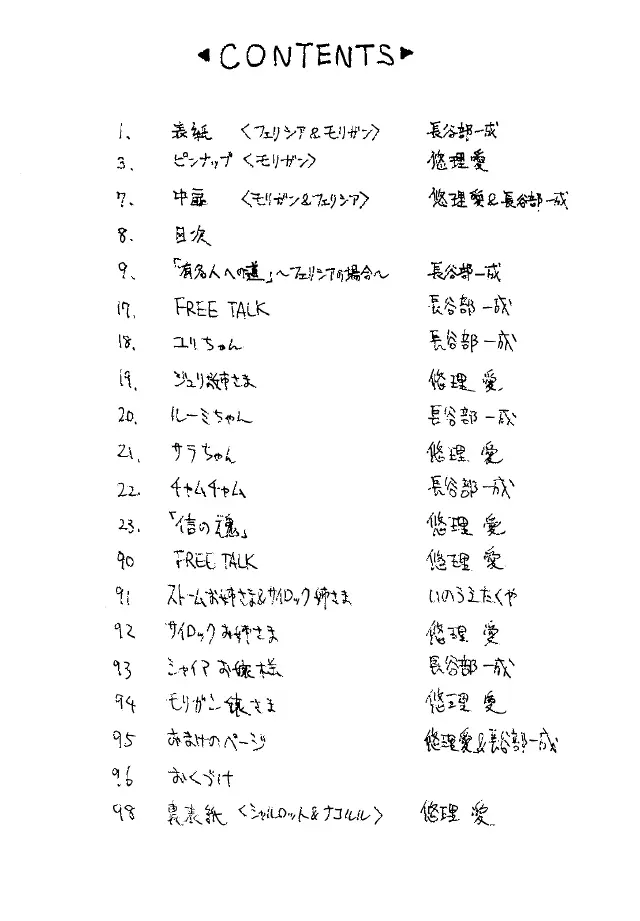 ◀CONTENTS▶
1. 表紙 〈フェリシア&モリガン〉 長谷部一成
3. ピンナップ〈モリガン〉 悠理愛
7. 中扉 〈モリガン&フェリシア〉 悠理愛&長谷部一成
8. 目次
9. 「有名人への道」〜フェリシアの場合〜 長谷部一成
17. FREE TALK 長谷部一成
18. ユリちゃん 長谷部一成
19. ジュリ姉さま 悠理 愛
20. ルーミちゃん 長谷部一成
21. サラちゃん 悠理 愛
22. チャムチャム 長谷部一成
23. 「信の魂」 悠理 愛
90 FREE TALK 悠理 愛
91 ストームお姉さま&サイロック姉さま いのうえたくや
92 サイロックお姉さま 悠理 愛
93 シャイアお嬢様 長谷部一成
94 モリガン嬢さま 悠理 愛
95 おまけのページ 悠理愛&長谷部一成
96 おくづけ
98 裏表紙〈シャルロット&ナコルル〉 悠理 愛